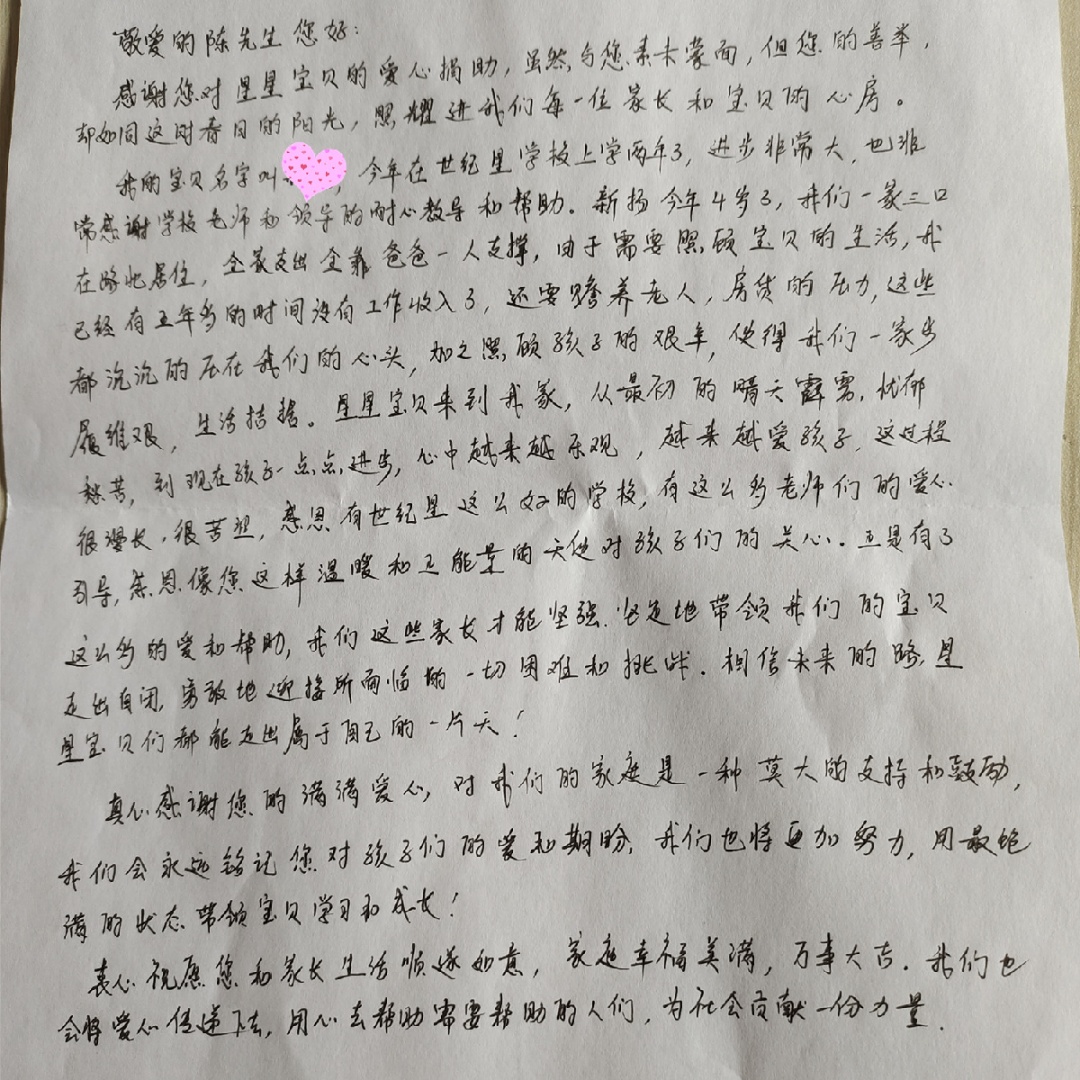 敬爱的陈先生您好:
感谢您对星星宝贝的爱心捐助,虽然与您素未蒙面,但您的善举,
却如同这时春日的阳光,照耀进我们每一位家长和宝贝的心房。
我的宝贝名字叫,今年在世纪星学校上学两年了,进步非常大,也非
常感谢学校老师和领导的耐心教导和帮助。新扬今年4岁了,我们一家三口
在路北居住,全家支出全靠爸爸一人支撑,由于需要照顾宝贝的生活,我
已经有五年多的时间没有工作收入了,还要赡养老人,房贷的压力,这些
都沉沉的压在我们的心头,加之照顾孩子的艰辛,使得我们一家步
履维艰,生活拮据。星星宝贝来到我家,从最初的晴天霹雳,忧郁
愁苦,到现在孩子一点点进步,心中越来越乐观,越来越爱孩子,这过程
很漫长,很苦涩,感恩有世纪星这么好的学校,有这么多老师们的爱心
引导,感恩像您这样温暖和正能量的天使对孩子们的关心。正是有了
这么多的爱和帮助,我们这些家长才能坚强、坚定地带领我们的宝贝
走出自闭,勇敢地迎接所面临的一切困难和挑战。相信未来的路,星
星宝贝们都能走出属于自己的一片天!
真心感谢您的满满爱心,对我们的家庭是一种莫大的支持和鼓励,
我们会永远铭记您对孩子们的爱和期盼,我们也将更加努力,用最饱
满的状态带领宝贝学习和成长!
衷心祝愿您和家长生活顺遂如意,家庭幸福美满,万事大吉。我们也
会将爱心传递下去,用心去帮助需要帮助的人们,为社会贡献一份力量.